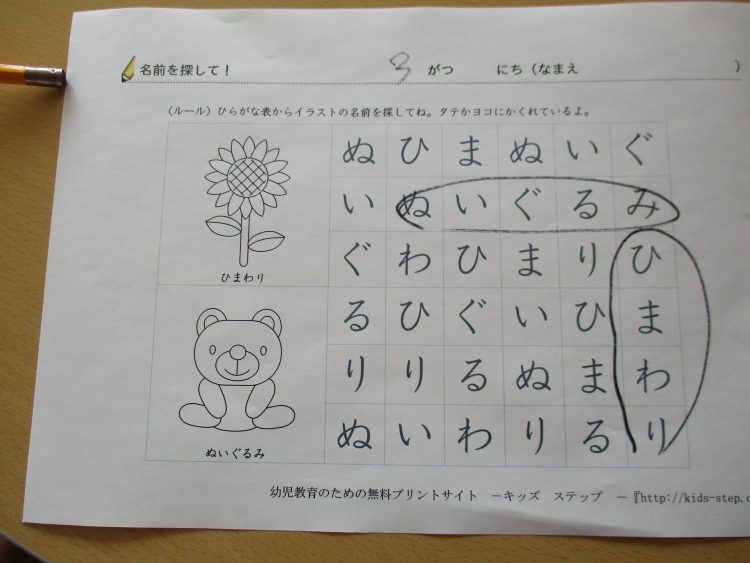 名前を探して！ 3 がつ にち（なまえ ）
（ルール）ひらがな表からイラストの名前を探してね。タテかヨコにかくれているよ。
ぬ ひ ま ぬ い ぐ
い ぬ い ぐ る み
ぐ わ ひ ま り ひ
る ひ ぐ い ひ ま
り り る ぬ ま わ
ぬ い わ り る り
ひまわり
ぬいぐるみ
幼児教育のための無料プリントサイト －キッズ ステップ －『http://kids-step.c